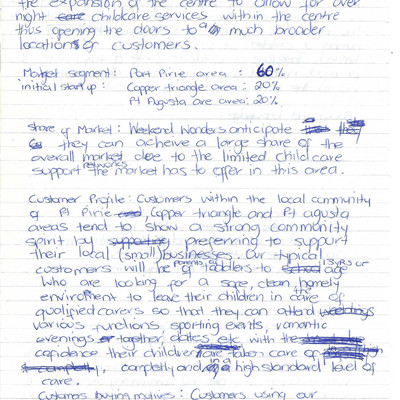 the expansion of the centre to allow for over
night care childcare services within the centre
thus opening the doors to a much broader
locations of customers.
Market segment: Port Pirie area : 60%
initial start up : Copper triangle area : 20%
Pt Augusta are area: 20%
Share of Market : Weekend Wonders anticipate
they can acheive a large share of the
overall market due to the limited child care
support networks the market has to offer in this area.
Customer Profile: Customers within the local community
of Pt Pirie and, Copper triangle and Pt augusta
areas tend to show a strong community
spirit by supporting preferring to support
their local (small) businesses. Our typical
customers will be parents of toddlers to school age 13yrs or
who are looking for a safe, clean, homely
enviroment to leave their children in the care of
qualified carers so that they can attend weddings
various functions, sporting events, romantic
evenings or together, dates etc with the
confidence their children are taken care of
completly, completly and in a high standard level of
care.
Customers buying motives: Customers using our